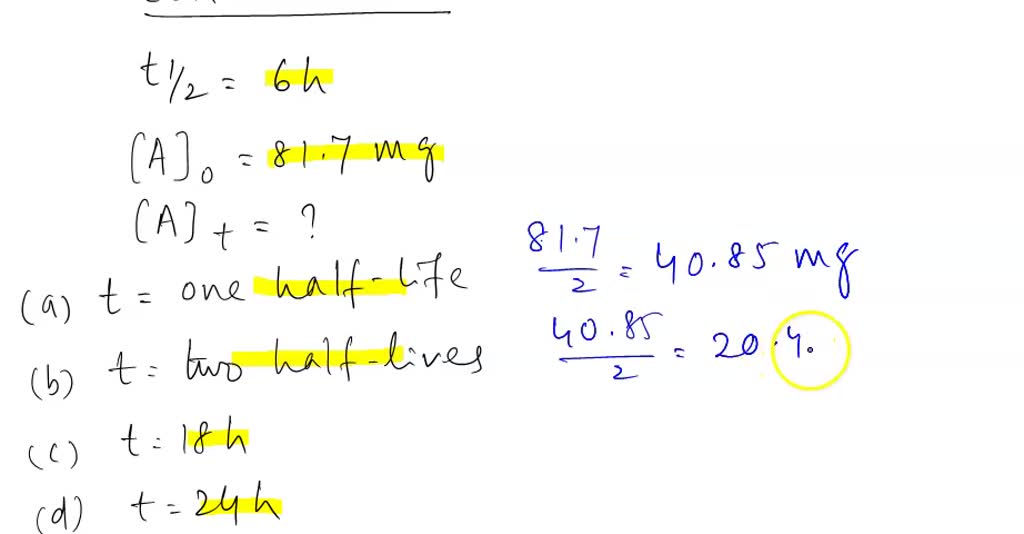 t1/2 = 6h
[A]0 = 81.7 mg
[A]t = ?
(a) t = one half-life
81.7/2 = 40.85 mg
(b) t = two half-lives
40.85/2 = 20.4
(c) t = 18h
(d) t = 24h